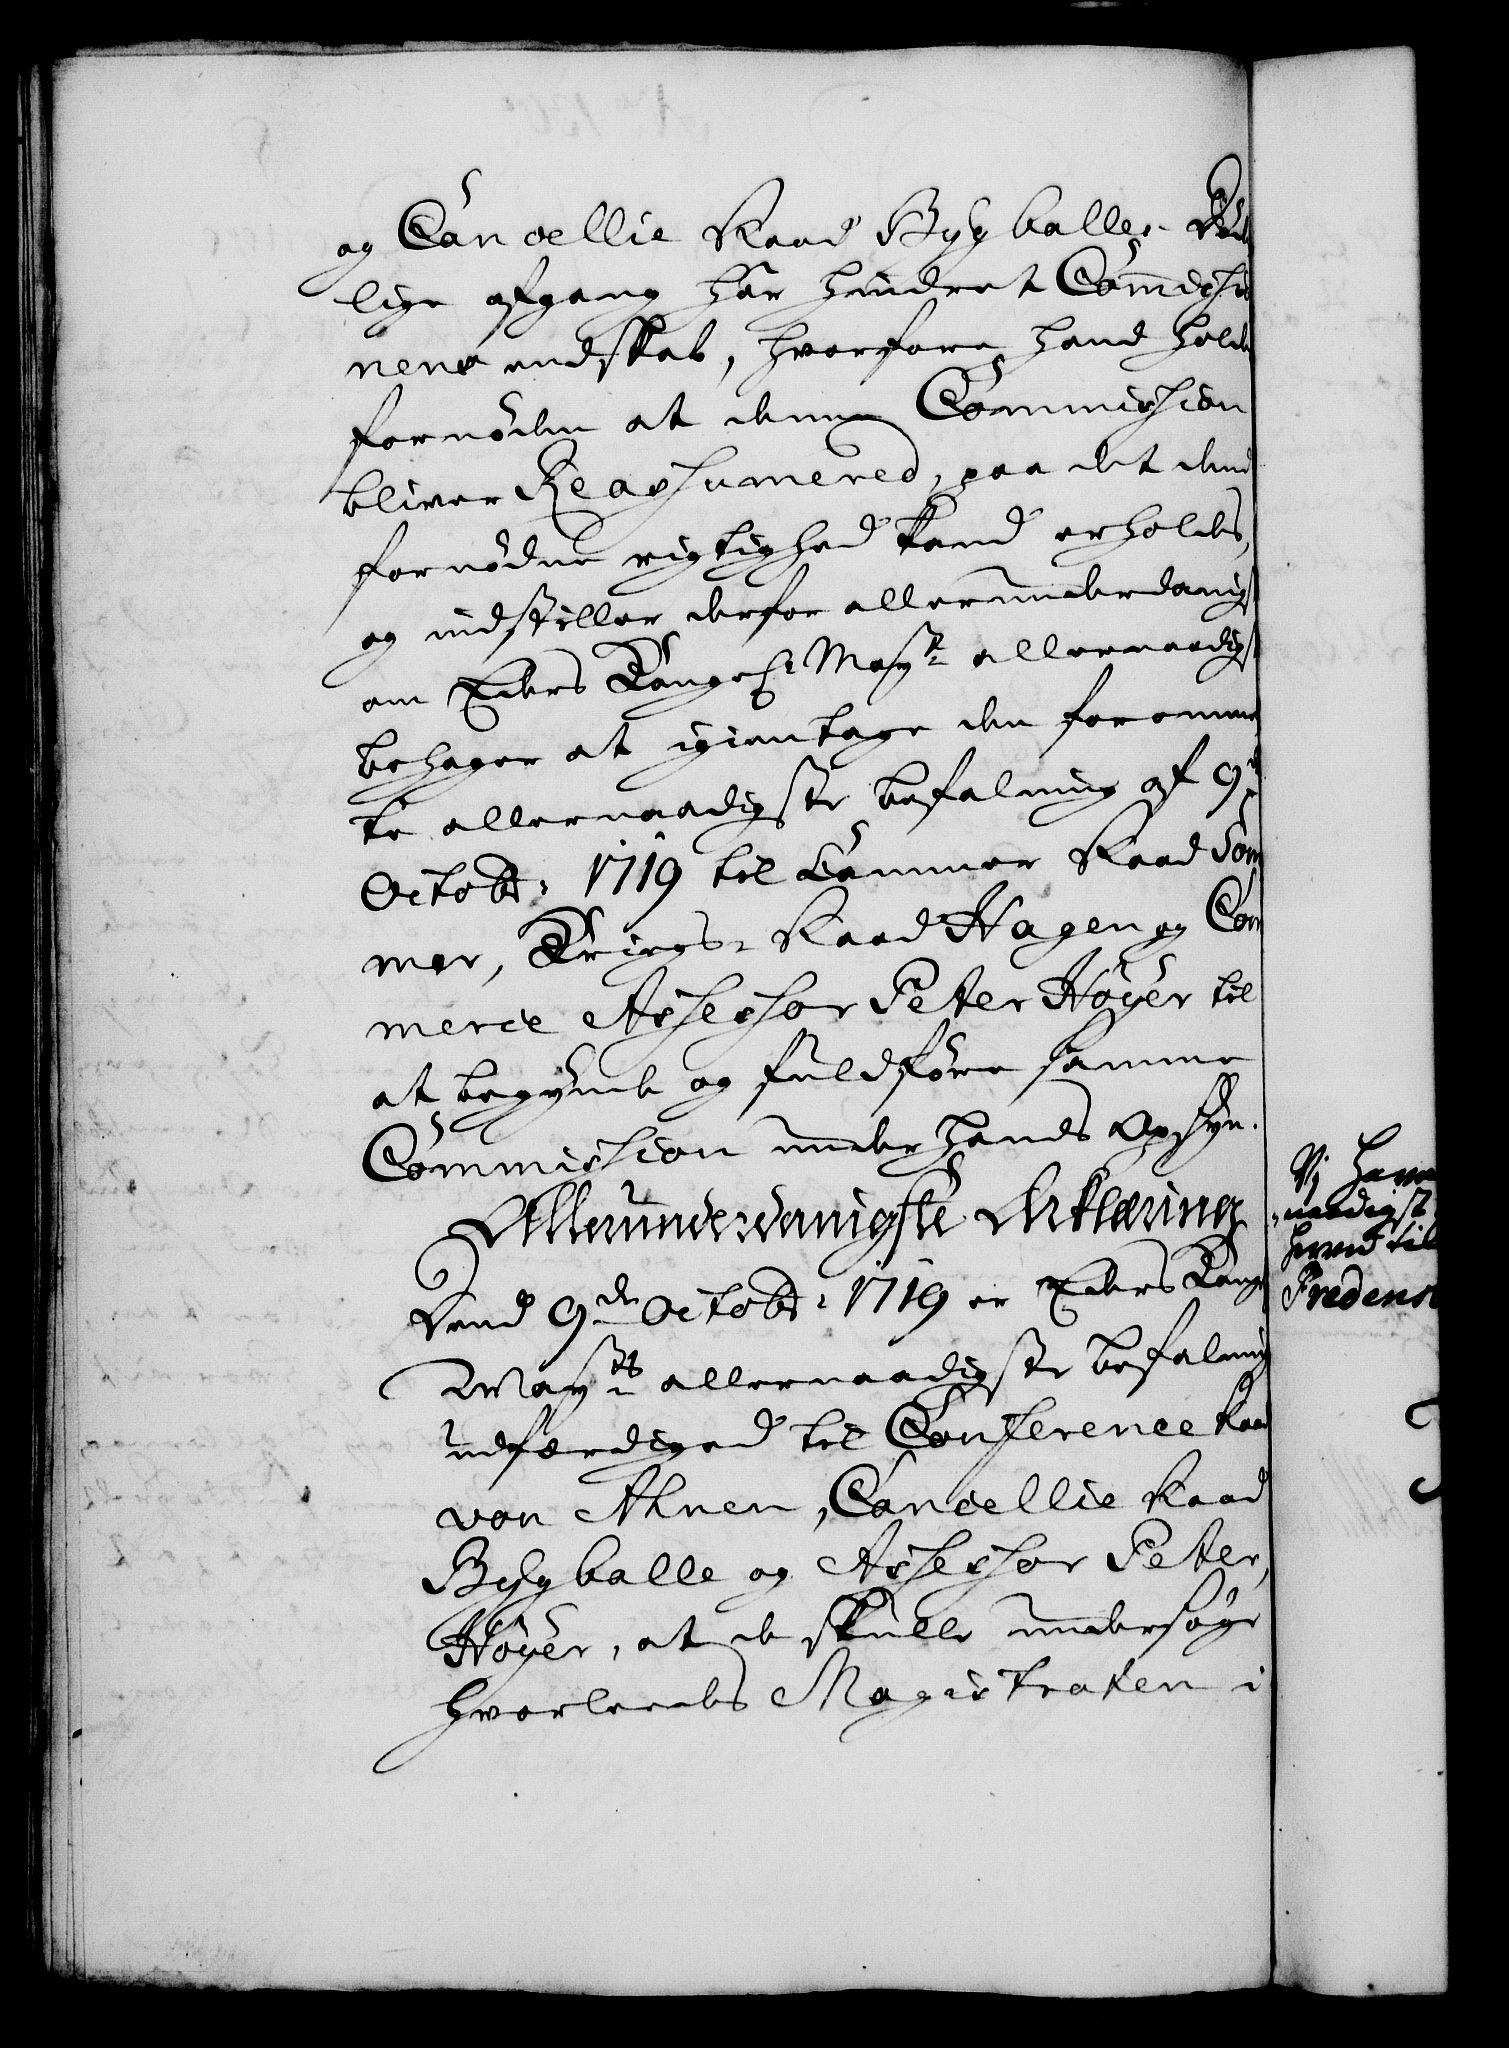 og Cancellie Raad Bygballes Död-
lige afgang har hindret Commissio
nens endskab, hvorfore hand holder
fornöden at denne Commission
bliver Reassumered, paa det dend
fornödne rigtighed kand erholdes,
og indstiller derfor allerunderdanigst
om Eders Kongel: Mayt: allernaadigst
behager at igientage den forommel
te allernaadigste befalning af 9de
Octobr: 1719 til Cammer Raad Som
mer, Krigs-Raad Hagen og Com
merce Assessor Peter Höyer til
at begynde og fuldföre samme
Commission under hands Opsyn.
Allerunderdanigste Erklæring
Dend 9de Octobr: 1719 er Eders Kong
Mayts: allernaadigste befalning
udfærdiged til Conference Raad
von Ahnen, Cancellie Raad
Bygballe og Assessor Peter
Höyer, at de skulle undersöge
hvorleedes Magistraten i
Vj have
naadigst
herved til
Fredens